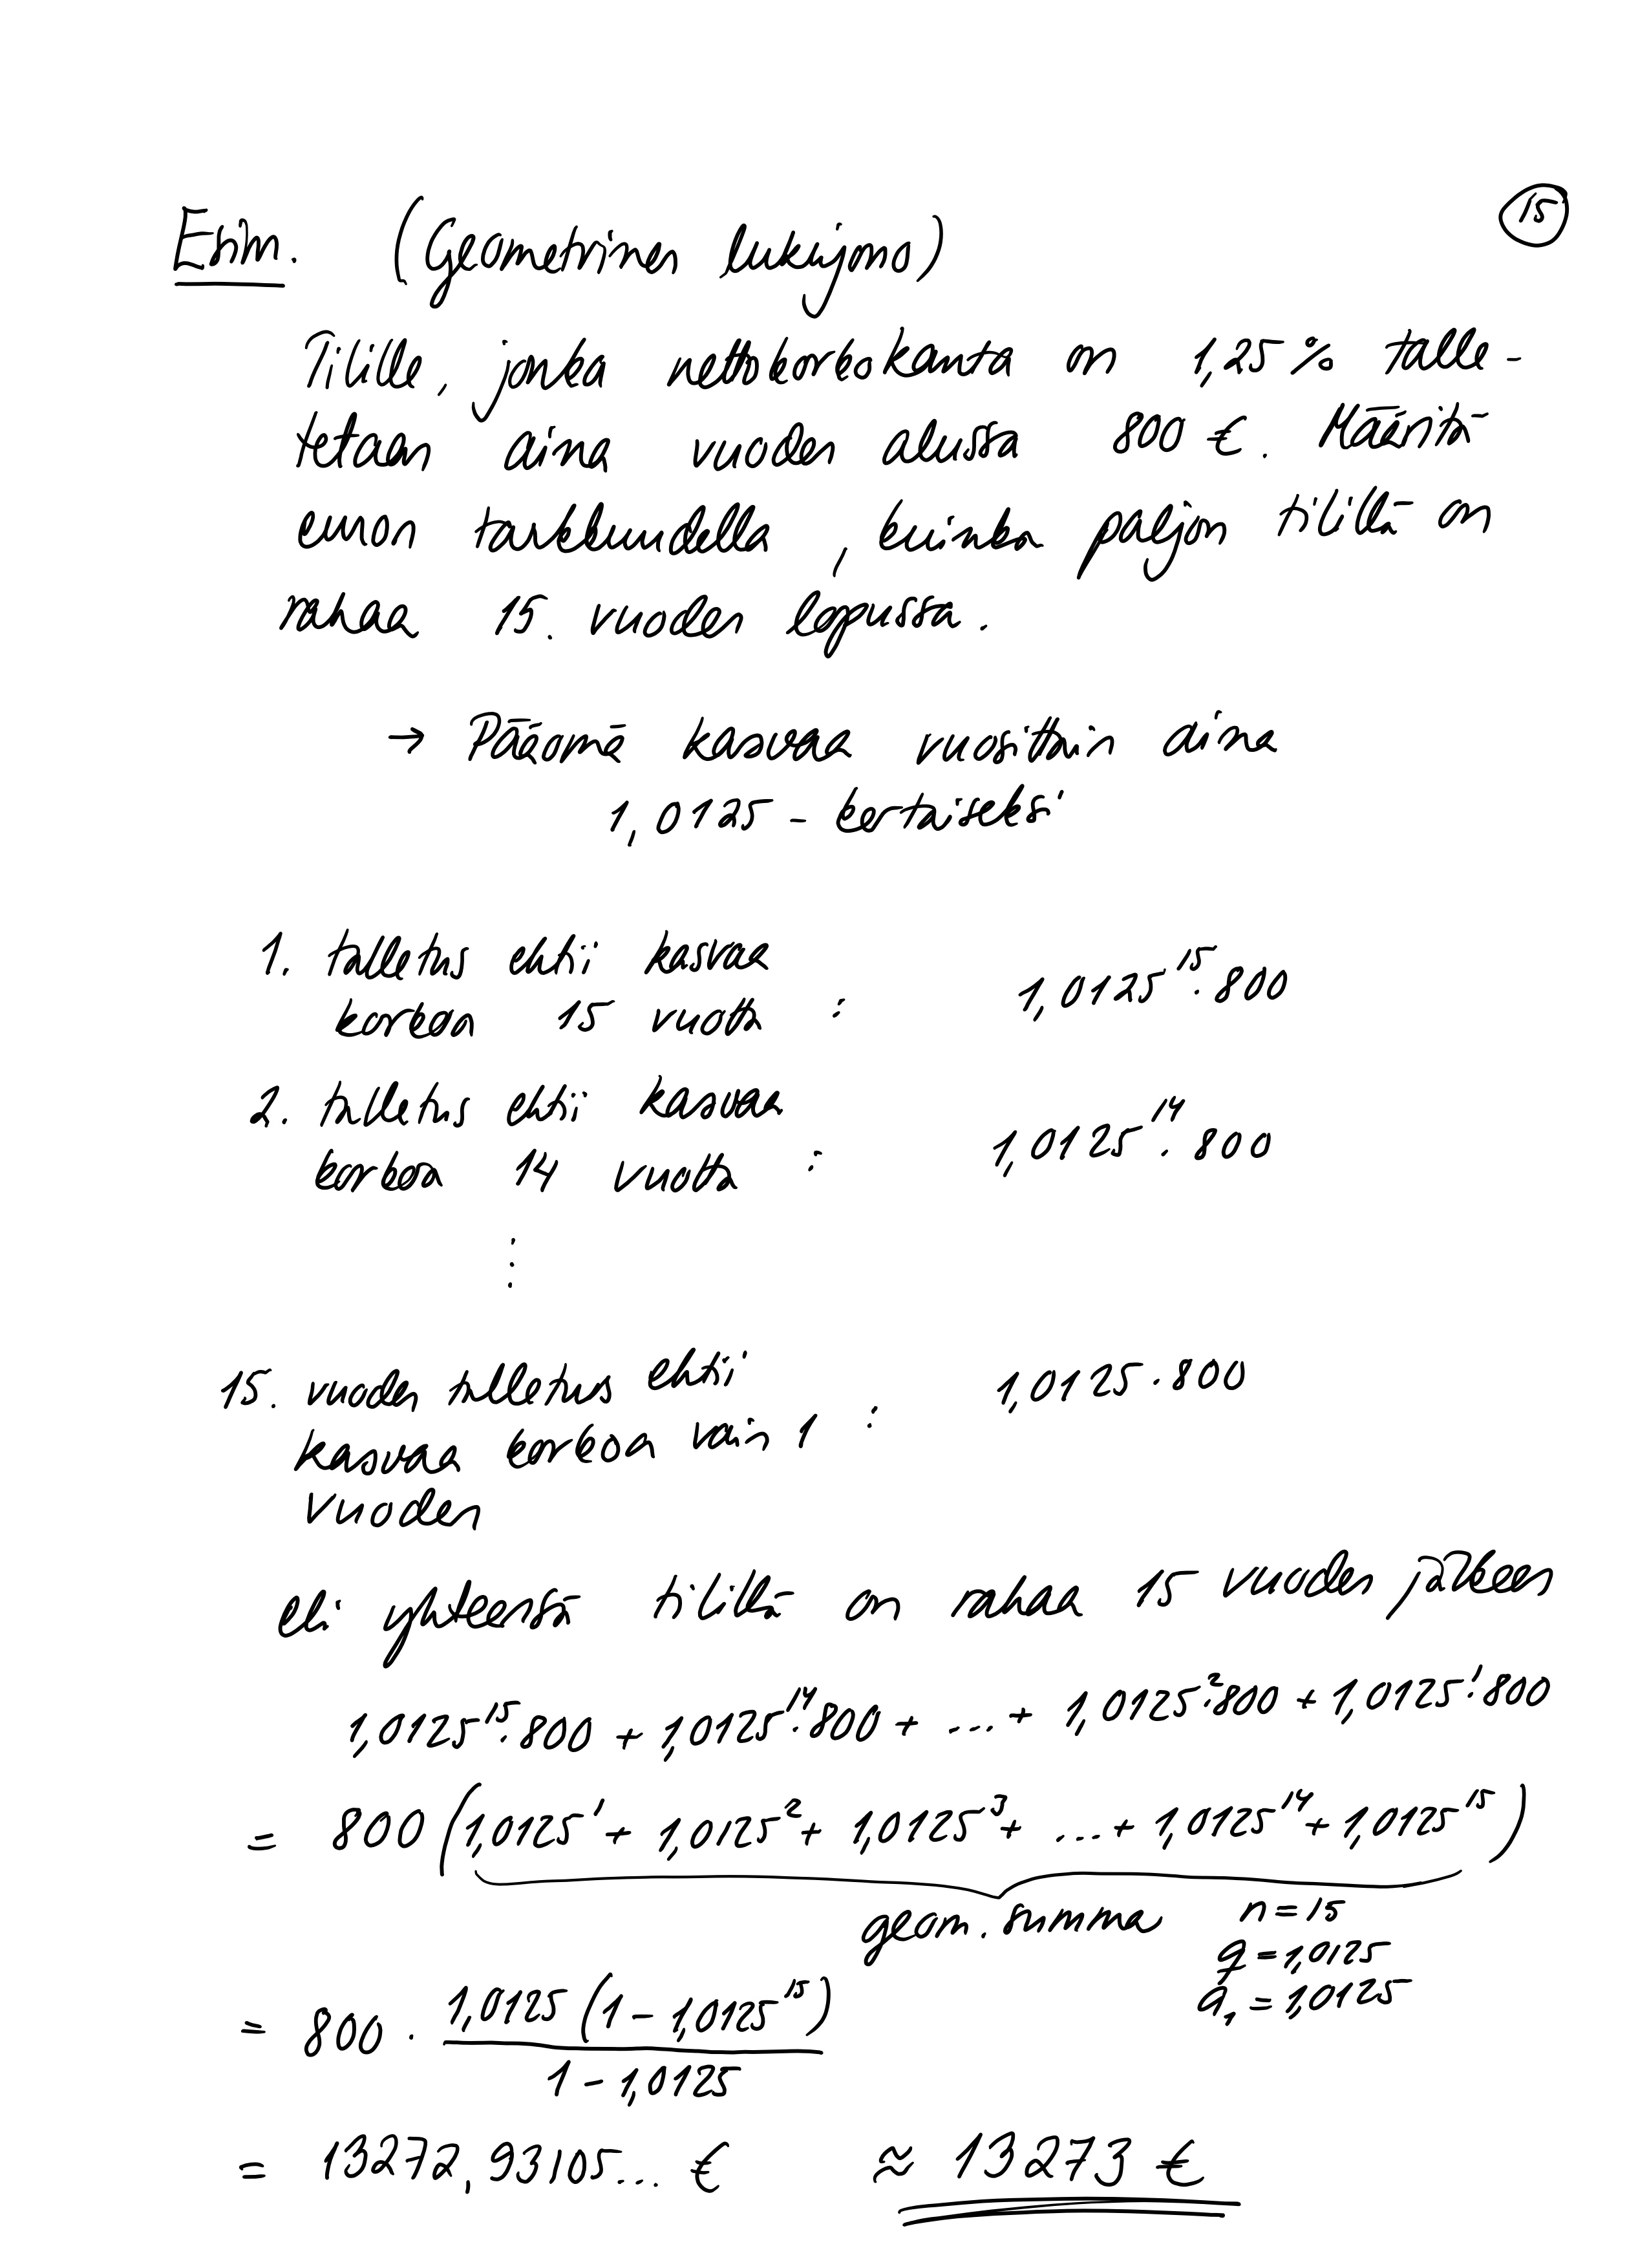 Esim. (Geometrinen lukujono) 15
Tilille, jonka nettokorkokanta on 1,25 % talle-
tetaan aina vuoden alussa 800 €. Määritä
euron tarkkuudella, kuinka paljon tilillä on
rahaa 15. vuoden lopussa.
→ Pääoma kasvaa vuosittain aina
1,0125 - kertaiseksi
1. talletus ehtii kasvaa
korkoa 15 vuotta : 1,0125¹⁵ · 800
2. talletus ehtii kasvaa
korkoa 14 vuotta : 1,0125¹⁴ · 800
⋮
15. vuoden talletus ehtii
kasvaa korkoa vain 1 : 1,0125 · 800
vuoden
eli yhteensä tilillä on rahaa 15 vuoden jälkeen
1,0125¹⁵ · 800 + 1,0125¹⁴ · 800 + ... + 1,0125² · 800 + 1,0125¹ · 800
= 800 (1,0125¹ + 1,0125² + 1,0125³ + ... + 1,0125¹⁴ + 1,0125¹⁵)
geom. summa n = 15
q = 1,0125
a₁ = 1,0125
= 800 · 1,0125 (1 - 1,0125¹⁵)
1 - 1,0125
= 13272,93105... € ≈ 13273 €